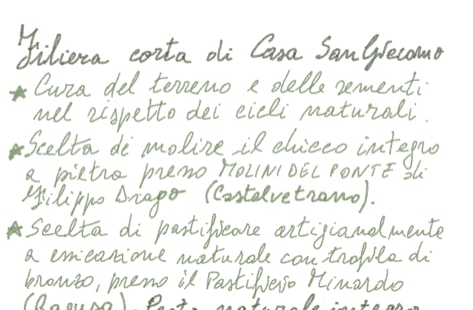 Filiera corta di Casa San Giacomo
* Cura del terreno e delle sementi
nel rispetto dei cicli naturali.
* Scelta di molire il chicco integro
a pietra presso MOLINI DEL PONTE di
Filippo Drago (Castelvetrano).
* Scelta di pastificare artigianalmente
a essicazione naturale con trafila di
bronzo, presso il Pastificio Minardo
(Ragusa). Pasta naturale integra